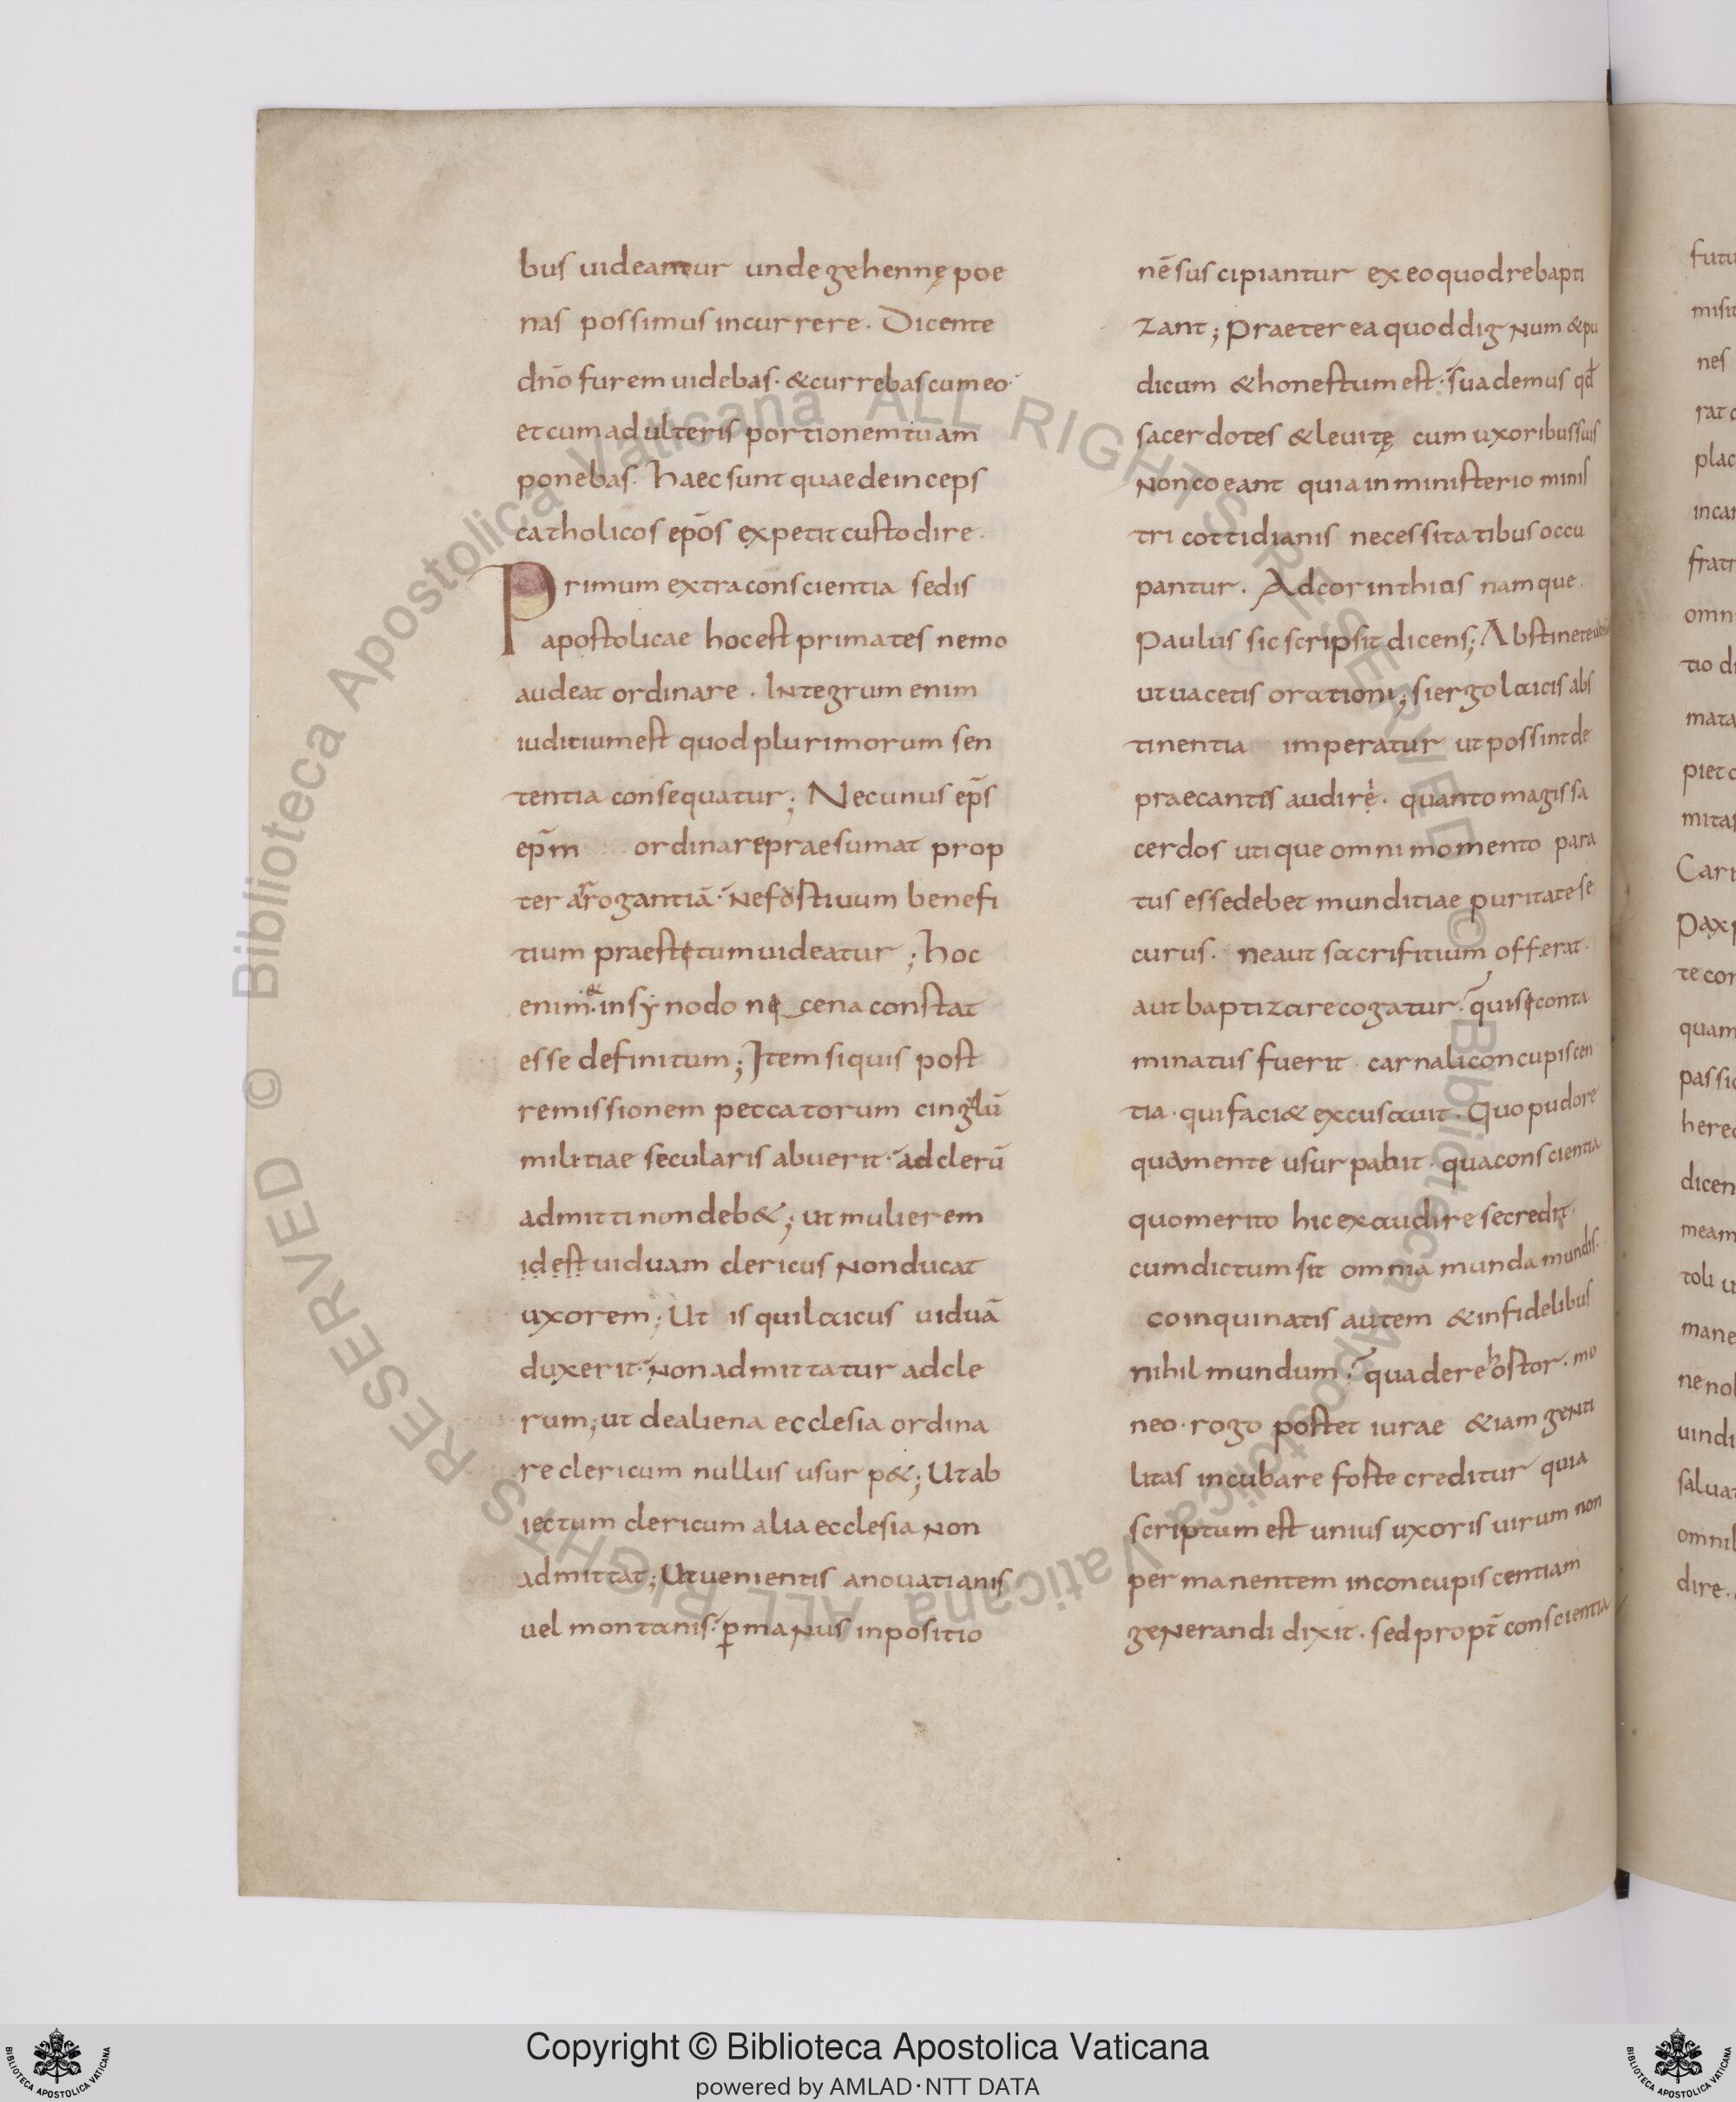 bus uideantur unde gehennę poe
nas possimus incurrere. Dicente
dnō furem uidebas. & currebas cum eo.
et cum adulteris portionem tuam
ponebas. haec sunt quae deinceps
catholicos ep̄os expetit custodire.
Primum extra conscientia sedis
apostolicae hoc est primates nemo
audeat ordinare. Integrum enim
iuditium est quod plurimorum sen
tentia consequatur; Nec unus ep̄s
ep̄m ordinare praesumat prop
ter arrogantiā. Ne furtiuum benefi
tium praestetum uideatur; hoc
enim & in synodo necena constat
esse definitum; Item si quis post
remissionem peccatorum cingulū
militiae secularis abuerit. ad clerū
admitti non deb&; ut mulierem
id est uiduam clericus non ducat
uxorem; Ut is qui laicus uiduā
duxerit. non admittatur ad cle
rum; ut de aliena ecclesia ordina
re clericum nullus usurp&; Ut ab
iectum clericum alia ecclesia non
admittat; Ut uenientis a nouatianis
uel montanis. ꝑ manus inpositio
nē suscipiantur ex eo quod rebapti
zant; Praeterea quod dignum & pu
dicum & honestum est. suademus qđ
sacerdotes & leuitę cum uxoribus suis
non coeant quia in ministerio minis
tri cottidianis necessitatibus occu
pantur. Ad corinthios namque.
Paulus sic scripsit dicens; Abstinete
ut uacetis orationi; si ergo laicis abs
tinentia imperatur ut possint de
praecantes audire. quanto magis sa
cerdos utique omni momento para
tus esse debet munditiae puritate se
curus. ne aut sacrifitium offerat.
aut baptizare cogatur. qui si conta
minatus fuerit carnali concupiscen
tia. qui faci& excusauit. Quo pudore
qua mente usurpabit. qua conscientia
quo merito hic exaudire se credit.
cum dictum sit omnia munda mundis.
coinquinatis autem & infidelibus
nihil mundum. qua de re hostor. mo
neo. rogo postet iurae &iam genti
litas incubare foste creditur quia
scriptum est unius uxoris uirum non
permanentem in concupiscentiam
generandi dixit. sed propt̄ conscientia
futu
misit
nes
rat
plac
incar
fratr
omn
tio d
mata
piet
mitas
Carr
Pax
te cor
quam
passio
here
dicen
meam
toli u
mane
ne nol
uindi
salua
omnib
dire.
© Biblioteca Apostolica Vaticana ALL RIGHTS RESERVED © Biblioteca Apostolica Vaticana ALL RIGHTS RESERVED
Copyright © Biblioteca Apostolica Vaticana
powered by AMLAD·NTT DATA
BIBLIOTECA APOSTOLICA VATICANA
BIBLIOTECA APOSTOLICA VATICANA